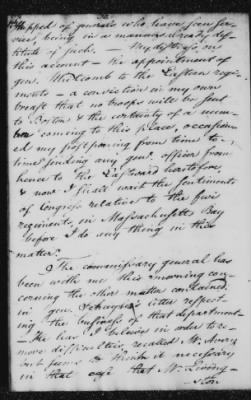 stripped of generals who leave your ser-
vice, being in a manner already des-
titute of such. — My distress on
this account — the appointment of
gen. Whitcomb to the Eastern regi-
ments — a conviction in my own
breast that no troops will be sent
to Boston & the certainty of a num-
ber coming to this place, occasion-
ed my postponing from time to
time sending any gen. officer from
hence to the Eastward heretofore,
& now I shall wait the sentiments
of Congress relative to the five
regiments in Massachusetts Bay
before I do any thing in this
matter.
The commissary general has
been with me this morning con-
cerning the other matter contained
in gen. Schuyler's letter respect-
ing the business of that department
— He has I believe in order to re-
move difficulties, recalled Mr. Avery
but seems to think it necessary
in that case that Mr. Living-
ston